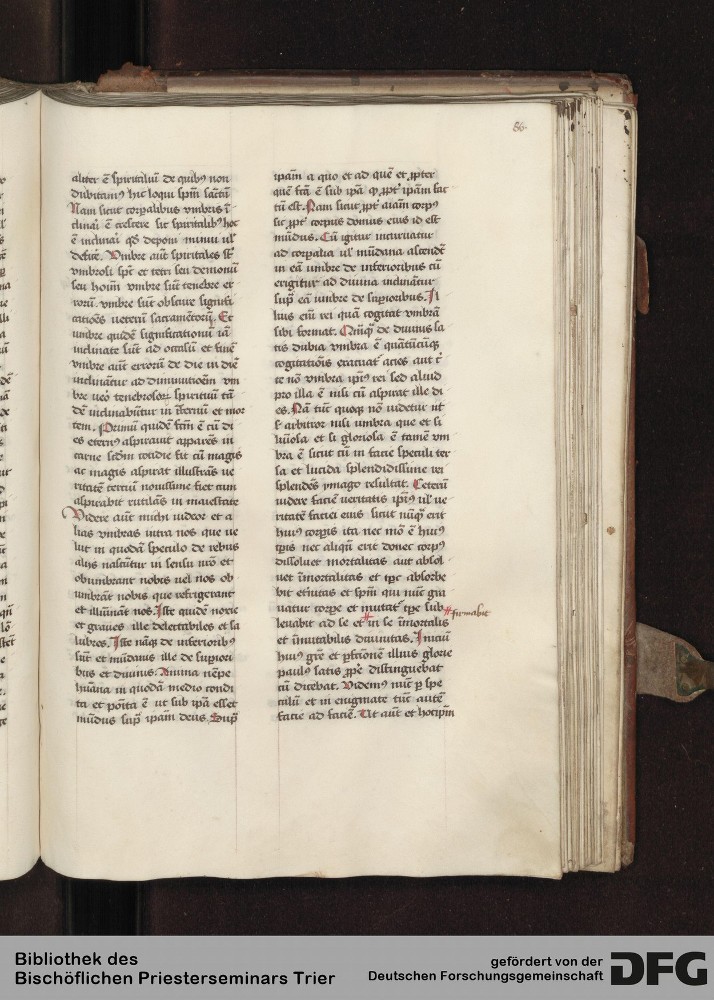 86
aliter ē spiritaliū de quibꝰ non
dubitamꝰ hic loqui spm̄ sāctū
Nam sicut corꝑalibus vmbris ī
clinai ē crescere sic spiritalibꝰ hoc
ē inclinai qd̄ deponi minui ul̓
deficē. Vmbre aūt spiritales st̄
vmbrosi spc̄ et tetri seu demonū
seu hoīm vmbre sūt tenebre er
rorū. vmbre sūt obscure signifi
catōes ueterū sacramētorū. Et
umbre quidē significationū iā
inclinate sūt ad occasū et finē
vmbre aūt errorū de die in diē
inclināтur ad diminutioēm vm
bre ueō tenebrosorū spirituū tā
dē inclinabūtur in īternū et mor
tem. Primū quidē fcm̄ ē cū di
es eternꝰ aspirauit apparēs in
carne scdm̄ cotidie fit cū magis
ac magis aspirat illustrās ue
ritatē terciū nouissime fiet cum
aspirabit rutilās in maiestate
Videre aūt michi uideor et a
lias vmbras intra nos que ue
lut in quodā speculo de rebus
alijs nascūtur in sensu nrō et
obumbrant nobis uel nos ob
umbrāt nobis que refrigerant
et illumināt nos. Iste quidē noxie
et graues ille delectabiles et sa
lubres. Iste nāqꝫ de inferioribꝰ
sūt et mūdanis ille de suꝑiori
bus et diuinis. Anima nēpe
hūana in quodā medio condi
ta et poīta ē ut sub ipā esset
mūdus suꝑ ipam deus. Suꝑ
ipam a quo et ad quē et ꝓpter
quē fcā ē sub ipā qͥ ꝓpt̓ ipam fac
tū est. Nam sicut ꝓpt̓ aīam corpꝰ
sic ꝓpt̓ corpus domus eius id est
mūdus. Cū igitur incuruatur
ad corꝑalia ul̓ mūdana ascendt̄
in eā umbre de inferioribus cū
erigitur ad diuina inclināтur
suꝑ eā umbre de suꝑioribus. Il
lius eīm rei quā cogitat vmbrā
sibi format. Cūqꝫ de diuinis sa
tis dubia vmbra ē quātūcūqꝫ
cogitatiōis exacuat acies aut c̓
te nō vmbra ipīꝰ rei sed aliud
pro illa ē nisi cū aspirat ille di
es. Nā tūc quoqꝫ nō uidetur ut
arbitror nisi umbra que et si
lūiosa et si gloriosa ē tamē vm
bra ē sicut cū in facie speculi ter
sa et lucida splendidissime rei
splendēs ymago resultat. Ceterū
uidere faciē ueritatis ipīꝰ ul̓ ue
ritatē faciei eius sicut nūqͣ erit
huiꝰ corꝑis ita nec mō ē huiꝰ
tp̄is nec aliqn̄ erit donec corpꝰ
dissoluet mortalitas aut absol
uet īmortalitas et tp̄c absorbe
bit et̓nitas et spm̄ qui nūc gra
uatur corpe et mutat̓ tp̄e sub
firmabit
leuabit ad se et in se īmortalis
et īmutabilis diuinitas. Inicīū
huiꝰ grē et ꝑfctionē illius glorie
paulꝰ satis ꝓpe distinguebat
cū dicebat. Videmꝰ nūc ꝑ spe
culū et in enigmate tūc autē
facie ad faciē. Ut aūt et hoc ipm̄
Bibliothek des
Bischöflichen Priesterseminars Trier
gefördert von der
Deutschen Forschungsgemeinschaft
DFG